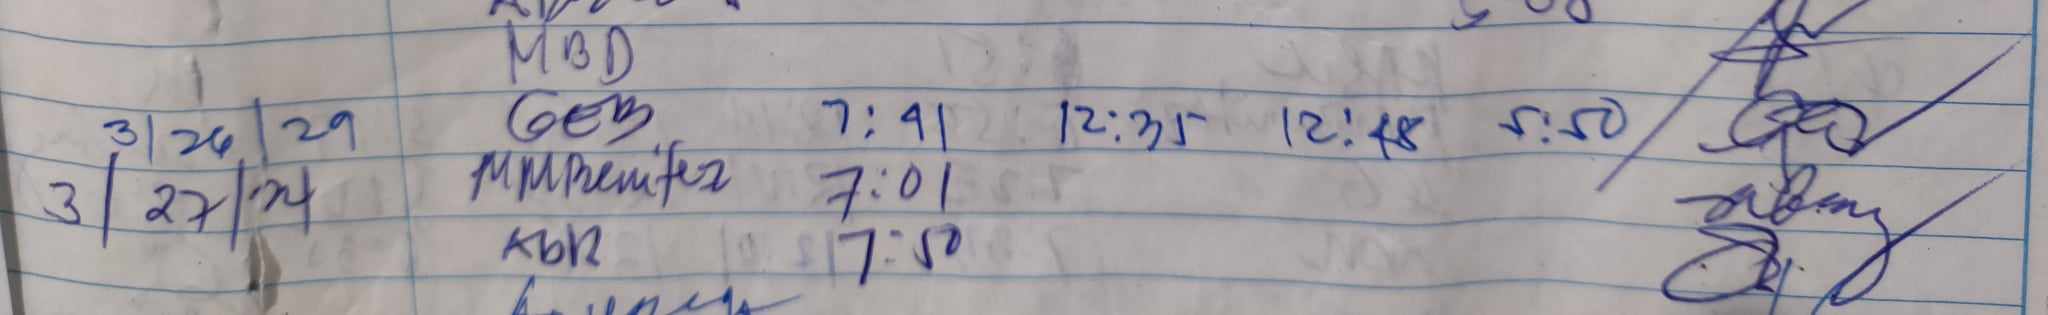 MBD
3/26/29 GEB 7:41 12:35 12:48 5:50
3/27/24 MMBenitez 7:01
KbR 7:50